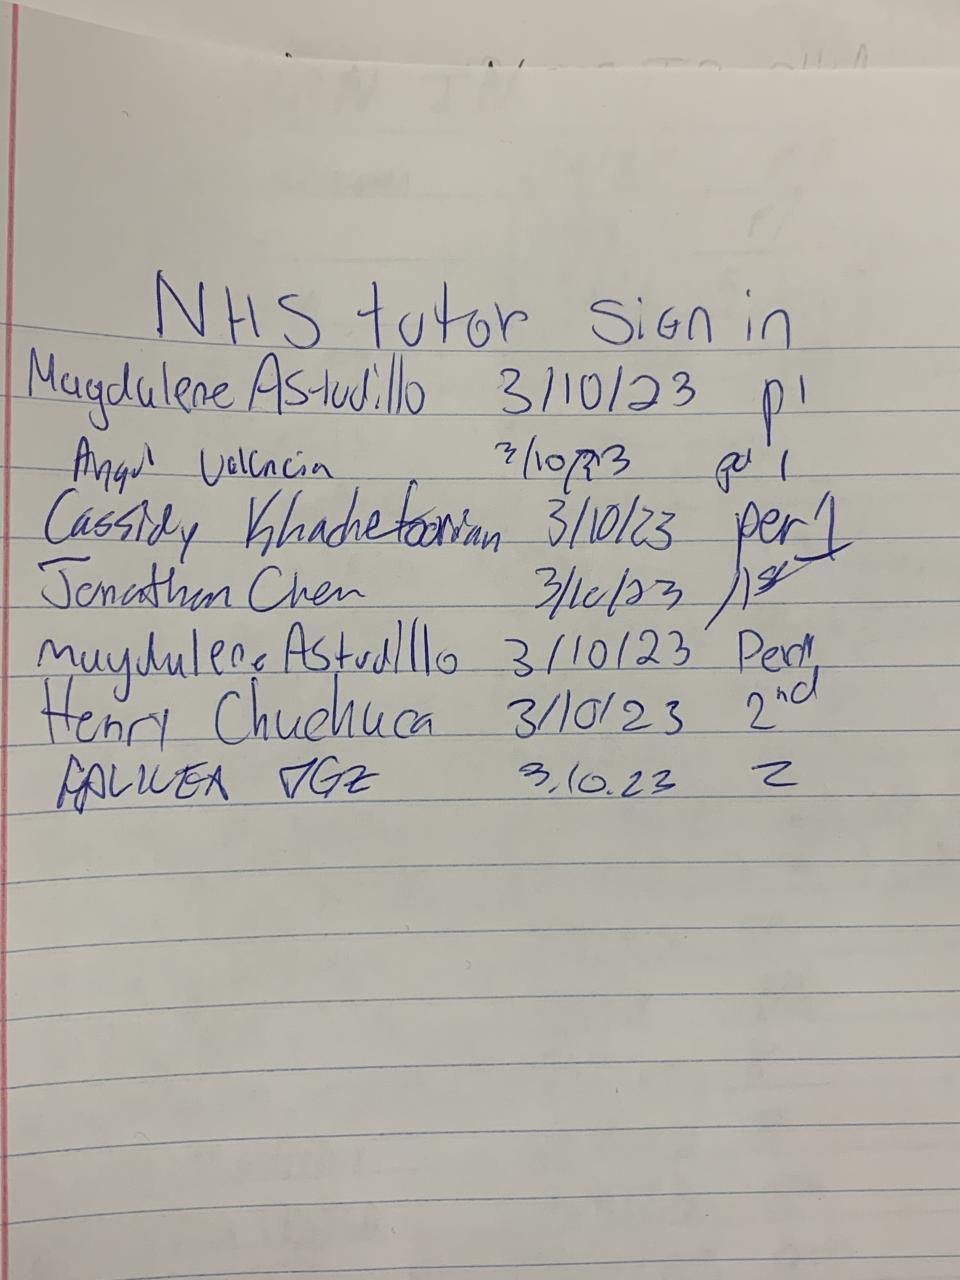 NHS tutor Sign in
Magdalene Astudillo 3/10/23 p1
Angel Valencia 3/10/23 pd 1
Cassidy Khachetoorian 3/10/23 per 1
Jonathan Chen 3/10/23 1st
Magdalene Astudillo 3/10/23
Henry Chuchuca 3/10/23 2nd
3.10.23 2